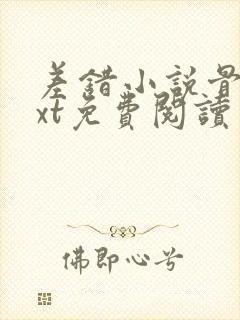 差錯小說骨
xt免費閱讀
佛即心兮